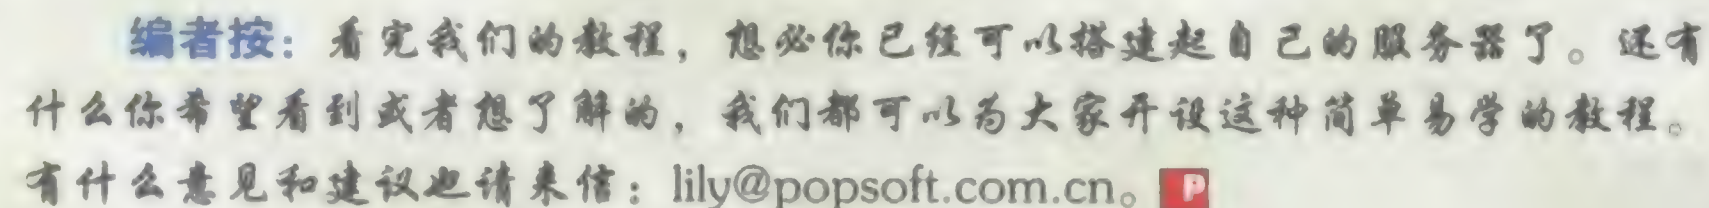 编者按：看完我们的教程，想必你已经可以搭建起自己的服务器了。还有
什么你希望看到或者想了解的，我们都可以为大家开设这种简单易学的教程。
有什么意见和建议也请来信：lily@popsoft.com.cn。P